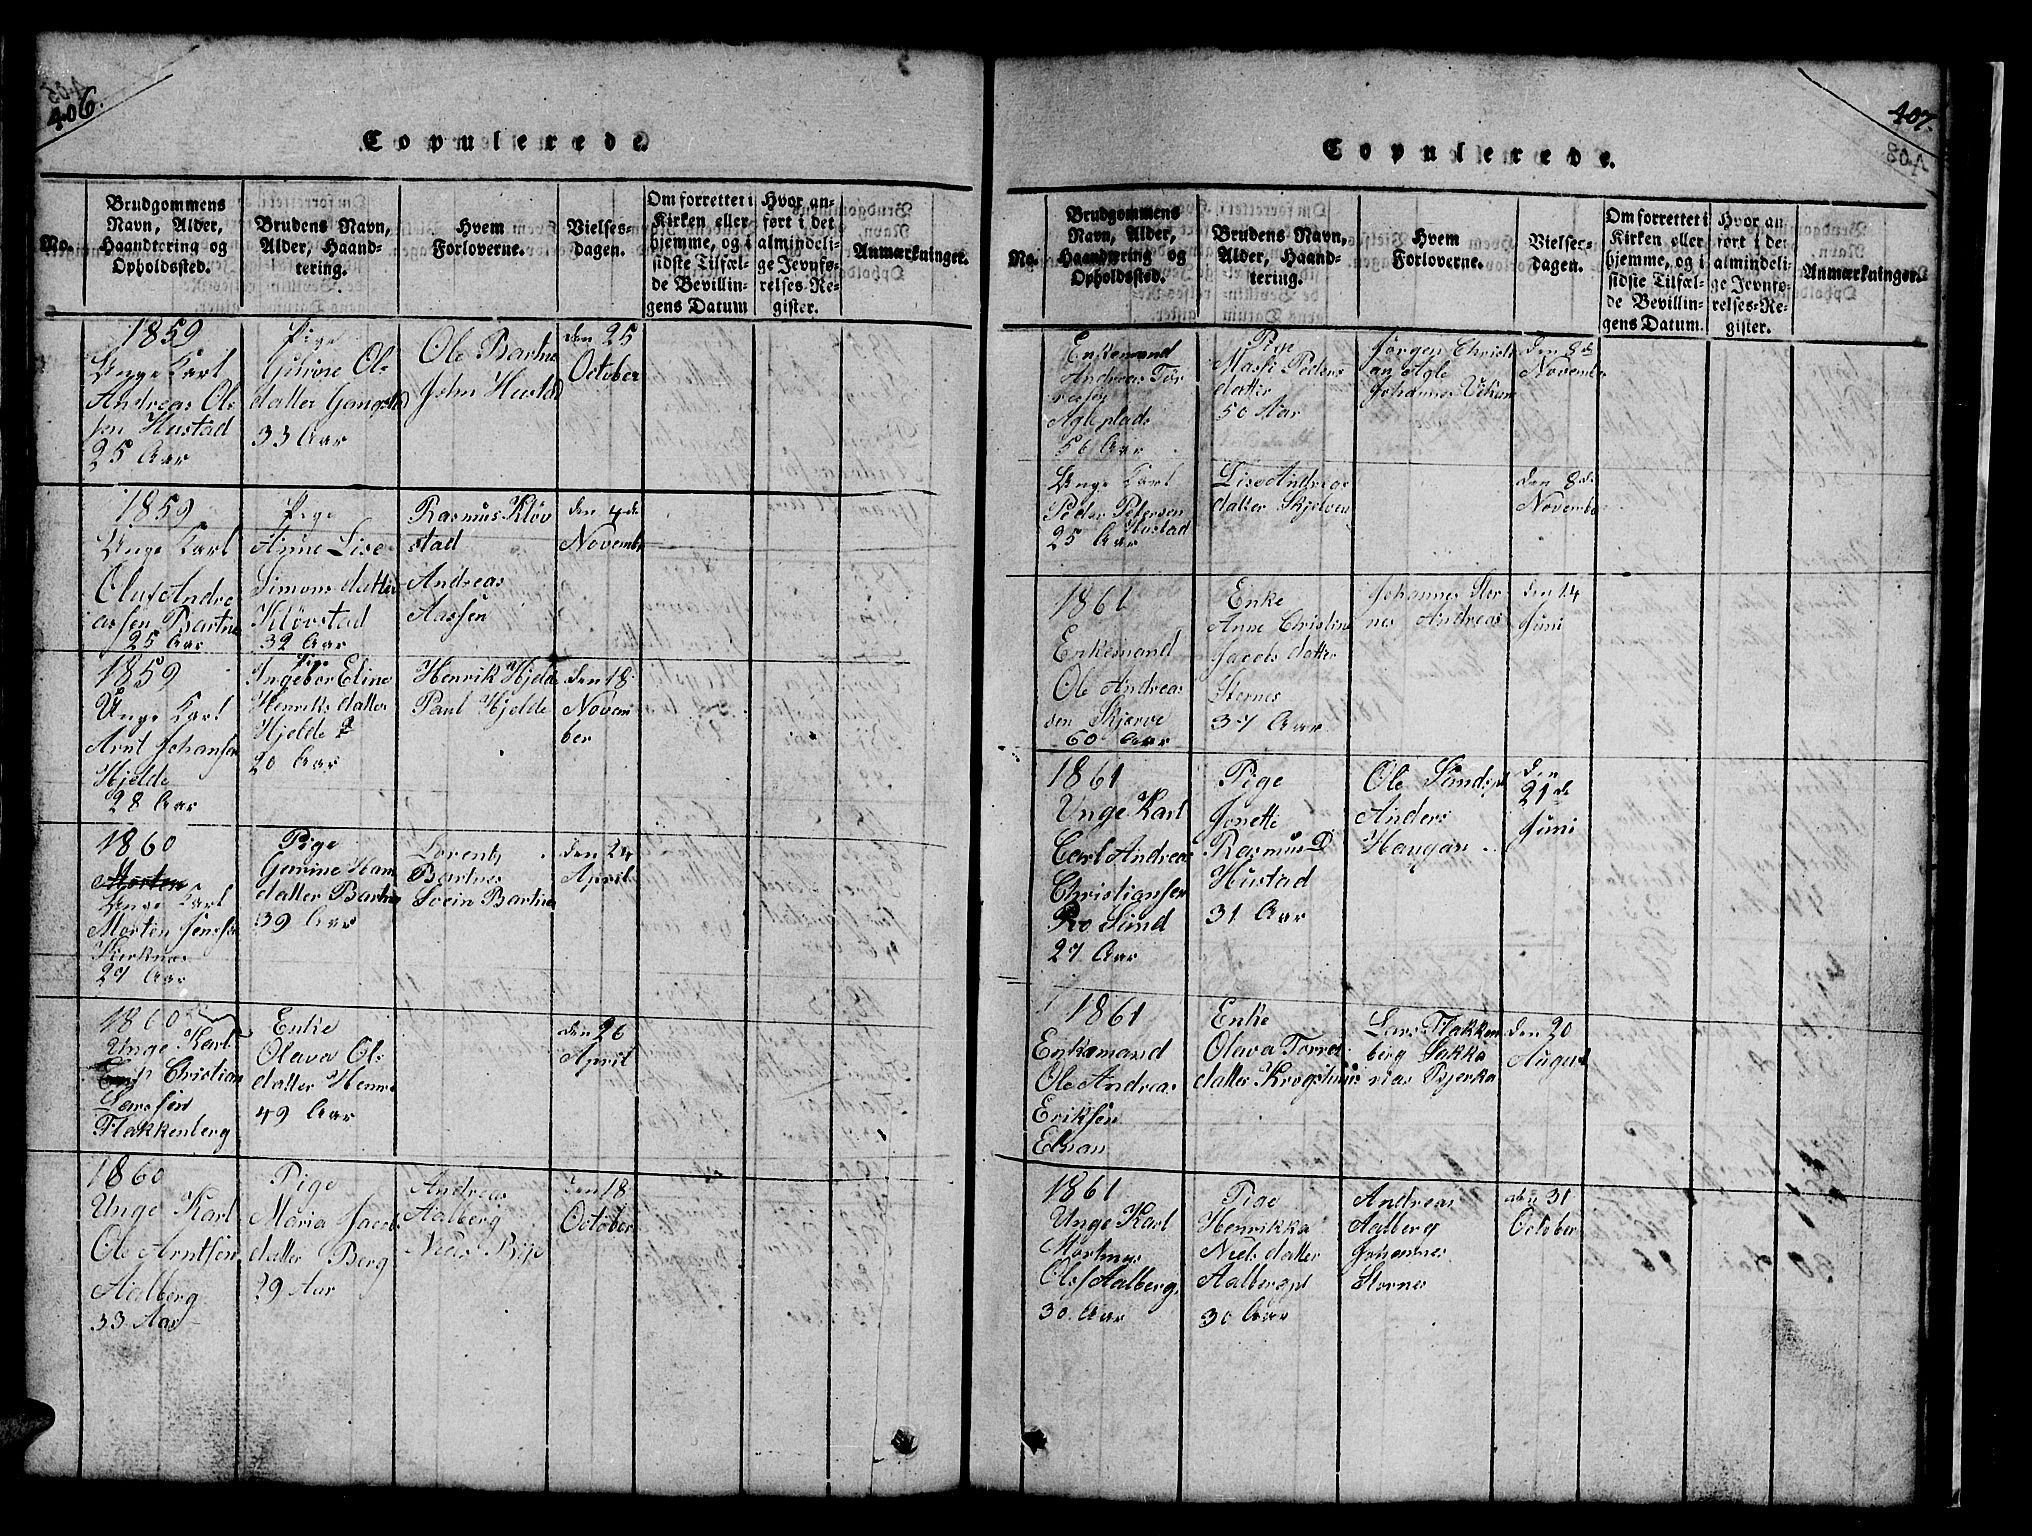 406.
Copulerede.
No.
Brudgommens
Navn, Alder,
Haandtering og
Opholdssted.
Brudens Navn,
Alder, Haand-
tering.
Hvem
Forloverne.
Vielses-
dagen.
Om forrettet i
Kirken eller
hjemme, og i
sidste Tilfæl-
de Bevillin-
gens Datum
Hvor an-
ført i det
almindeli-
ge Jevnfø-
relses-Re-
gister.
Anmærkninger.
1859
Unge Karl
Andreas Ol
sen Hustad
25 Aar
Pige
Ols
datter Gangstad
33 Aar
Ole Bartne
John Hustad
den 25
October
1859
Unge Karl
Oluf Andre
assen Bartne
25 Aar
Pige
Anne Lise
Simons datter
Kløvstad
32 Aar
Rasmus Kløv
stad
Andreas
Aassen
den 4de
Novemb
1859
Unge Karl
Arnt Johansen
Hjelde
28 Aar
Pige
Ingebor Eline
Henriks datter
Hjelde
20 Aar
Henrik Hjelde
Paul Hjelde
den 18
Novem
ber
1860
Morten
Unge Karl
Morten Jenssen
Sterknæs
27 Aar
Pige
Gurine Han
datter Bartne
39 Aar
Lorents
Bartnes
Svein Bartne
den 24
April
1860
Unge Karl
Christian
Larssen
Flakkenberg
Enke
Olava Ols
datter Henne
49 Aar
den 26
April
1860
Unge Karl
Ole Arntsen
Aalberg
33 Aar
Pige
Maria Jacob
datter Berg
29 Aar
Andreas
Aalberg
Niels
den 18
October
407.
Copulerede.
No.
Brudgommens
Navn, Alder,
Haandtering og
Opholdssted.
Brudens Navn,
Alder, Haand-
tering.
Hvem
Forloverne.
Vielses-
dagen.
Om forrettet i
Kirken eller
hjemme, og i
sidste Tilfæl-
de Bevillin-
gens Datum.
Hvor an
ført i det
almindeli-
ge Jevnfø-
relses-Re-
gister.
Anmærkninger.
Enkemand
Andreas Tør
Agleplads
56 Aar
Pige
Massi Peders
datter
50 Aar
Jørgen Christi
an Agle
Johannes Vikum
den 8de
Novemb
Unge Karl
Peder Petersen
Hustad
25 Aar
Lise Andreas
datter Skjelven
den 8de
Novembe
1861
Enkemand
Ole Andreas
den Skjerve
60 Aar
Enke
Anne Christine
Jacobs datter
Sternes
37 Aar
Johannes Ster
nes Andreas
den 14
Juni
1861
Unge Karl
Carl Andreas
Christiansen
Ro Sund
27 Aar
Pige
Jonette
Rasmus D
Hustad
31 Aar
Ole Sundspl
Anders
Haugan
den
21de
Juni
1861
Enkemand
Ole Andreas
Eriksen
Elnan
Enke
Olava Torres
datter Krogshuus
Lars Flakken
berg Sakka
rias Bjerka
den 20
August
1861
Unge Karl
Mortinus
Ols Aalberg
30 Aar
Pige
Henrikka
Niels datter
Aalbergpl
30 Aar
Andreas
Aalberg
Johannes
Stornes
den 31
October